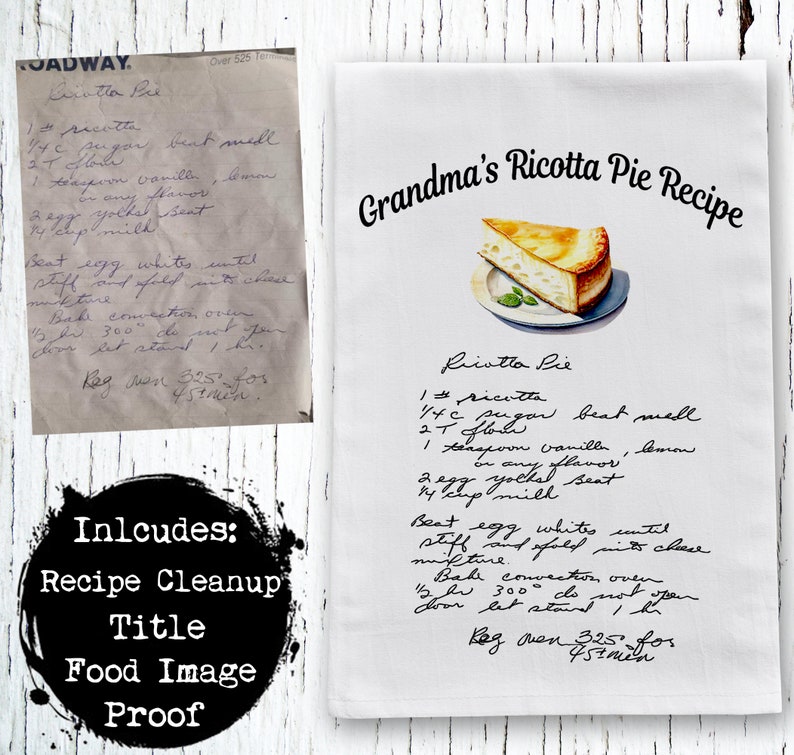 ROADWAY.
Over 525 Termin
Ricotta Pie
1 # ricotta
1/4 c sugar beat medl
2 T flour
1 teaspoon vanilla, lemon
or any flavor
2 egg yolks Beat
1/4 cup milk
Beat egg whites until
stiff and fold into cheese
mixture.
Bake convection oven
1/2 hr 300° do not open
door let stand 1 hr.
Reg oven 325° for
45± min.
Grandma's Ricotta Pie Recipe
Ricotta Pie
1 # ricotta
1/4 c sugar beat medl
2 T flour
1 teaspoon vanilla, lemon
or any flavor
2 egg yolks Beat
1/4 cup milk
Beat egg whites until
stiff and fold into cheese
mixture.
Bake convection oven
1/2 hr 300° do not open
door let stand 1 hr
Reg oven 325° for
45± min
Inlcudes:
Recipe Cleanup
Title
Food Image
Proof